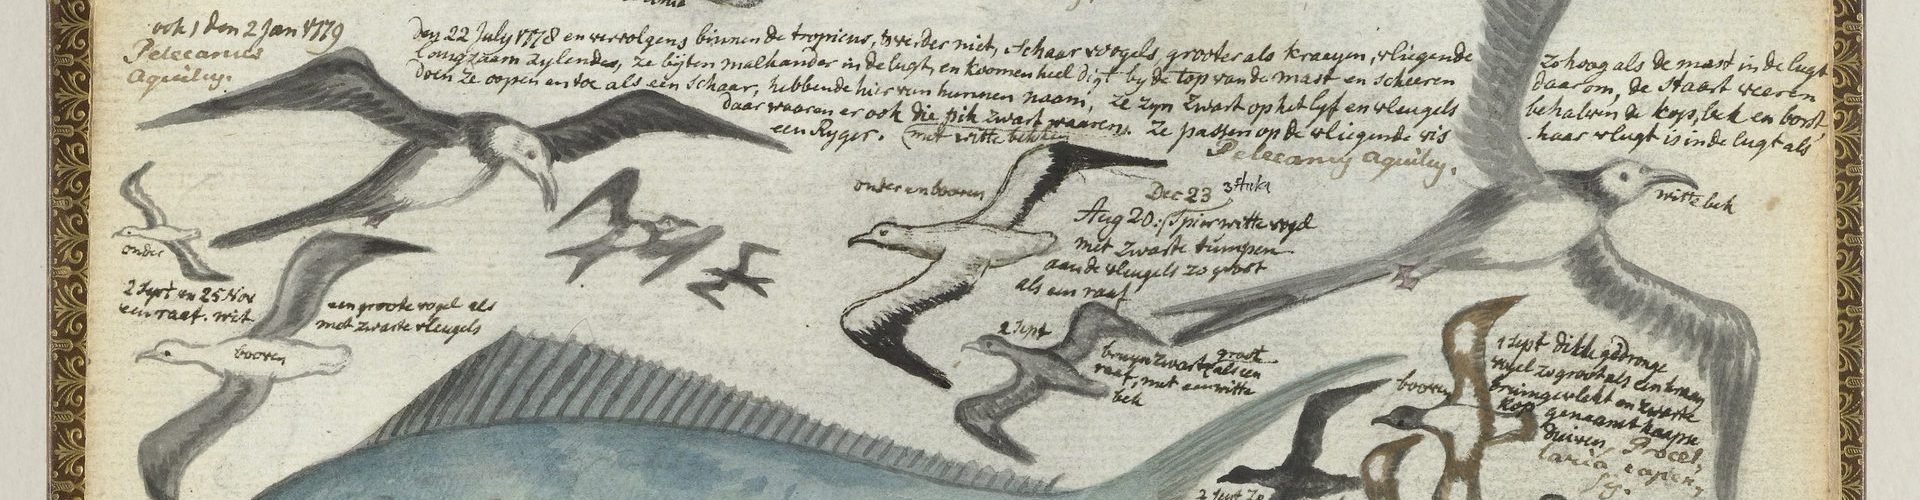 ook den 2 Jan 1779
Pelecanus
Aquilus.
Den 22 July 1778 en vervolgens binnen de tropicus, verder niet, schaar voogels, grooter als kraeyen, vliegende
langzaam zylende, ze byten malkander in de lugt, en koomen heel digt by de top van de mast en scheeren
doen ze oopen en toe als een schaar, hebbende hier van hunnen naam, ze zyn zwart op het lyf en vleugels
daar waaren er ook die pik zwart waaren, ze passen op de vliegende vis
een Ryger. (met witte bekken
Pelecanus Aquilus.
zo hoog als de mast in de lugt
daarom, de staart veeren
behalven de kop, bek en borst
haar vlugt is in de lugt als
witte bek
onder en booven
Dec 23 3 stuks
Aug 20: Spierwitte vogel
met zwarte
aan de vleugels zo groot
als een raaf
onder
2 Sept en 25 Nov
een raaf. wit
een groote vogel als
met zwarte vleugels
booven
2 Sept
bruyn zwart groot
als een
raaf, met een witte
bek
booven
1 Sept dikke gedronge
vogel zo groot als een kraay
bruin gevlekt en zwarte
kop genaamt kaapse
duiven Procel
laria capen
2 Sept zo